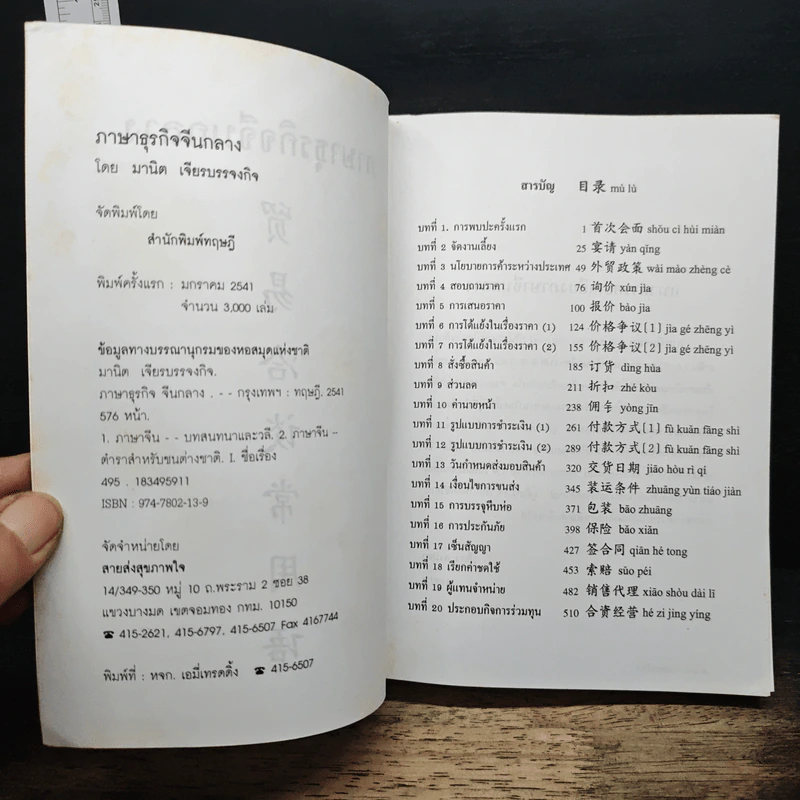 ภาษาธุรกิจจีนกลาง
โดย มานิต เจียรบรรจงกิจ
จัดพิมพ์โดย
สำนักพิมพ์ทฤษฎี
พิมพ์ครั้งแรก : มกราคม 2541
จำนวน 3,000 เล่ม
ข้อมูลทางบรรณานุกรมของหอสมุดแห่งชาติ
มานิต เจียรบรรจงกิจ.
ภาษาธุรกิจ จีนกลาง . - - กรุงเทพฯ : ทฤษฎี, 2541
576 หน้า.
1. ภาษาจีน - - บทสนทนาและวลี. 2. ภาษาจีน --
ตำราสำหรับชนต่างชาติ. I. ชื่อเรื่อง
495 . 183495911
ISBN : 974-7802-13-9
จัดจำหน่ายโดย
สายส่งสุขภาพใจ
14/349-350 หมู่ 10 ถ.พระราม 2 ซอย 38
แขวงบางมด เขตจอมทอง กทม. 10150
☎ 415-2621, 415-6797, 415-6507 Fax 4167744
พิมพ์ที่ : หจก. เอมี่เทรดดิ้ง ☎ 415-6507
สารบัญ 目录 mù lù
บทที่ 1. การพบปะครั้งแรก 1 首次会面 shǒu cì hùi miàn
บทที่ 2 จัดงานเลี้ยง 25 宴请 yàn qǐng
บทที่ 3 นโยบายการค้าระหว่างประเทศ 49 外贸政策 wài mào zhèng cè
บทที่ 4 สอบถามราคา 76 询价 xún jìa
บทที่ 5 การเสนอราคา 100 报价 bào jìa
บทที่ 6 การโต้แย้งในเรื่องราคา (1) 124 价格争议(1) jìa gé zhēng yì
บทที่ 7 การโต้แย้งในเรื่องราคา (2) 155 价格争议(2) jìa gé zhēng yì
บทที่ 8 สั่งซื้อสินค้า 185 订货 dìng hùa
บทที่ 9 ส่วนลด 211 折扣 zhé kòu
บทที่ 10 ค่านายหน้า 238 佣金 yòng jīn
บทที่ 11 รูปแบบการชำระเงิน (1) 261 付款方式(1) fù kuǎn fāng shì
บทที่ 12 รูปแบบการชำระเงิน (2) 289 付款方式(2) fù kuǎn fāng shì
บทที่ 13 วันกำหนดส่งมอบสินค้า 320 交货日期 jiāo hòu rì qí
บทที่ 14 เงื่อนไขการขนส่ง 345 装运条件 zhuāng yùn tiáo jiàn
บทที่ 15 การบรรจุหีบห่อ 371 包装 bāo zhuāng
บทที่ 16 การประกันภัย 398 保险 bǎo xiǎn
บทที่ 17 เซ็นสัญญา 427 签合同 qiān hé tong
บทที่ 18 เรียกค่าชดใช้ 453 索赔 sǔo péi
บทที่ 19 ผู้แทนจำหน่าย 482 销售代理 xiāo shòu dài lǐ
บทที่ 20 ประกอบกิจการร่วมทุน 510 合资经营 hé zi jing yíng